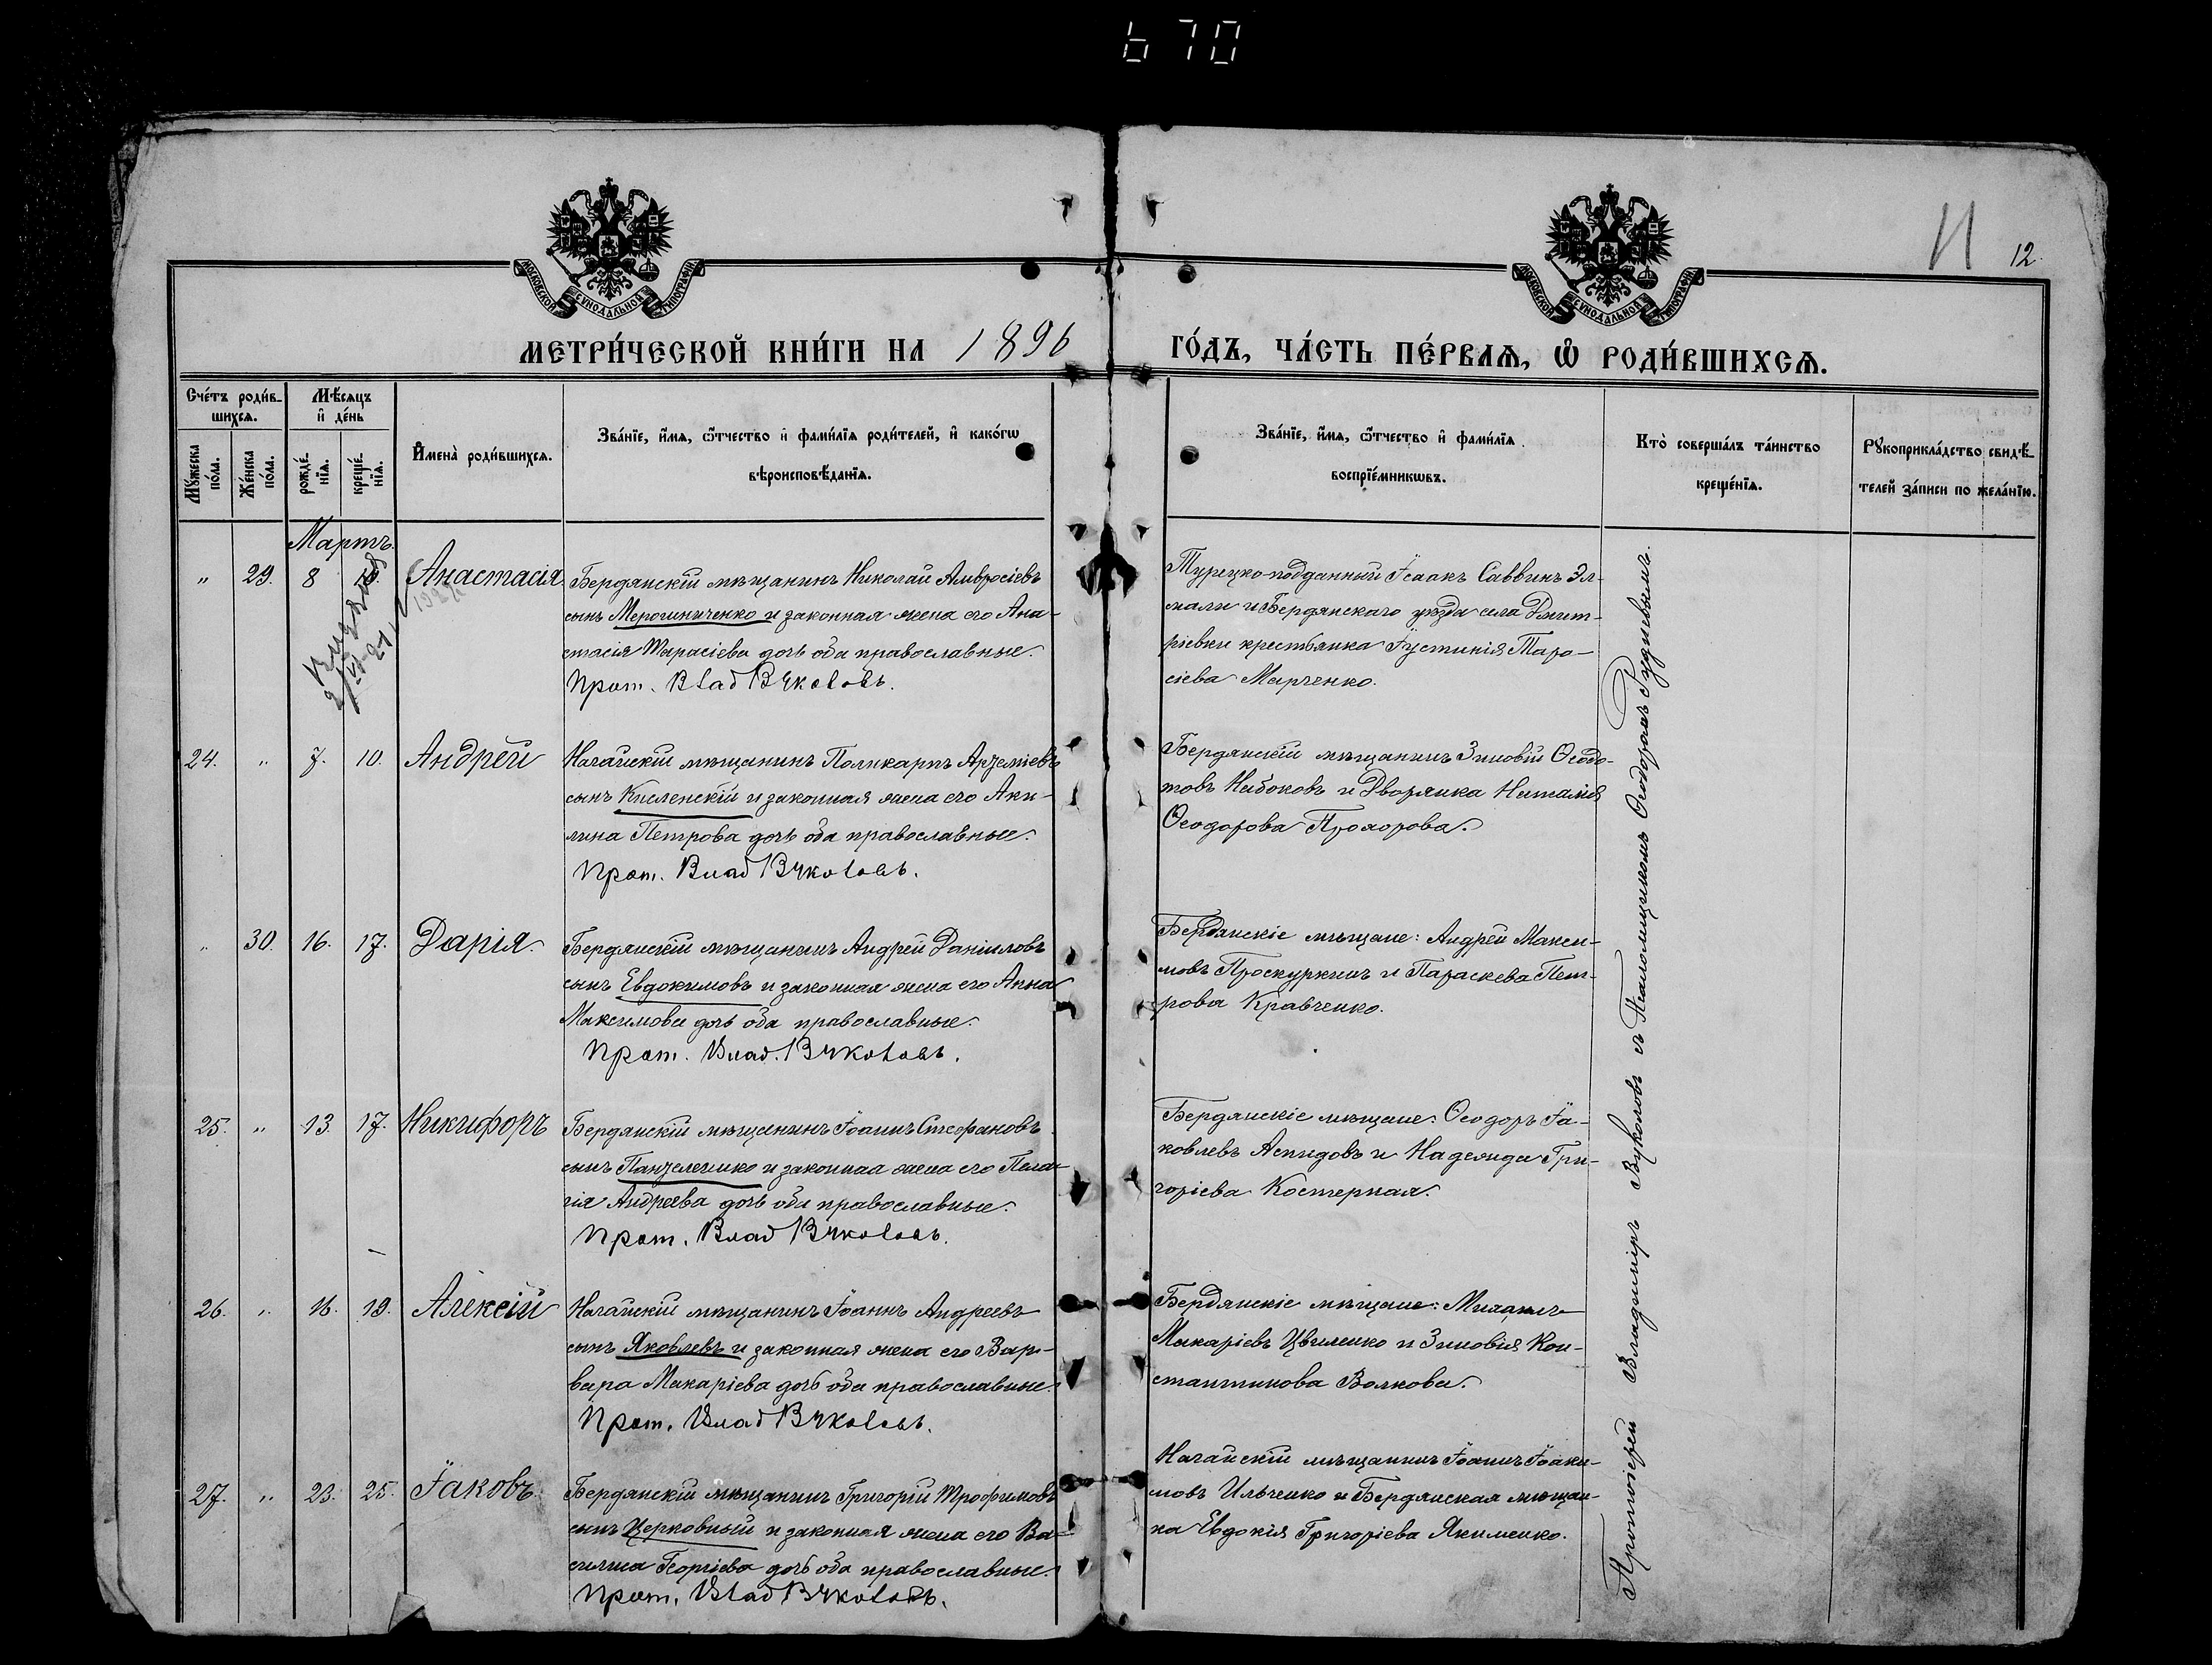 670
И 12.
МОСКОВСКОЙ СѴНОДАЛЬНОЙ ТИПОГРАФІИ
МОСКОВСКОЙ СѴНОДАЛЬНОЙ ТИПОГРАФІИ
МЕТРИ́ЧЕСКОЙ КНИ́ГИ НА 1896 ГО́ДЪ, ЧА́СТЬ ПЕ́РВАЯ, Ѽ РОДИ́ВШИХСЯ.
Сче́тъ роди́в-
шихся.
Мѣ́сяцъ
и҆ де́нь
Мꙋ́жеска
по́ла.
Же́нска
по́ла.
рожде́-
нїя.
креще́-
нїя.
И҆мена̀ роди́вшихся.
Зва́нїе, и҆́мя, ѻ҆́тчество и҆ фами́лїя роди́телей, и҆ како́гѡ
вѣроисповѣ́данїя.
Зва́нїе, и҆́мя, ѻ҆́тчество и҆ фами́лїя
воспрїе́мникѡвъ.
Кто̀ соверша́лъ та́инство
креще́нїя.
Рꙋкоприкла́дство свидѣ́-
телей за́писи по жела́нїю.
Мартъ.
" 29. 8 10. Анастасія.
Бердянскій мѣщанинъ Николай Амвросіевъ
сынъ Мерошниченко и законная жена его Ана-
стасія Тарасіева дочь оба православные.
Прот. Влад Вуколовъ.
Турецко-подданный Ісаакъ Саввинъ Эл-
мали и Бердянскаго уѣзда села Дмит-
ріевки крестьянка Іустинія Тара-
сіева Марченко.
24. " 7. 10. Андрей
Ногайскій мѣщанинъ Поликарпъ Артеміевъ
сынъ Кисленскій и законная жена его Аки-
лина Петрова дочь оба православные.
Прот. Влад Вуколовъ.
Бердянскій мѣщанинъ Зиновій Ѳедо-
товъ Набоковъ и Дворянка Наталія
Ѳеодорова Прохорова.
" 30. 16. 17. Дарія.
Бердянскій мѣщанинъ Андрей Даніиловъ
сынъ Евдокимовъ и законная жена его Анна
Максимова дочь оба православные.
Прот. Влад. Вуколовъ.
Бердянскіе мѣщане: Андрей Макси-
мовъ Проскуркинъ и Параскева Пет-
рова Кравченко.
25. " 13 17. Никифоръ
Бердянскій мѣщанинъ Іоаннъ Стефановъ
сынъ Пантелешко и законная жена его Пела-
гія Андреева дочь оба православные.
Прот. Влад Вуколовъ.
Бердянскіе мѣщане: Ѳеодоръ Іа-
ковлевъ Аспидовъ и Надежда Гри-
горіева Костерная.
26. " 16. 19. Алексій
Ногайскій мѣщанинъ Іоаннъ Андреевъ
сынъ Яковлевъ и законная жена его Вар-
вара Макаріева дочь оба православные.
Прот. Влад Вуколовъ.
Бердянскіе мѣщане: Михаилъ
Макаріевъ Цвиленко и Зиновія Кон-
стантинова Волкова.
27. " 23. 25. Іаковъ.
Бердянскій мѣщанинъ Григорій Трофимовъ
сынъ Церковный и законная жена его Ва-
силиса Георгіева дочь оба православные.
Прот. Влад Вуколовъ.
Ногайскій мѣщанинъ Іоаннъ Іоаки-
мовъ Ильченко и Бердянская мѣщан-
ка Евдокія Григоріева Якименко.
Протоіерей Владиміръ Вуколовъ съ Псаломщикомъ Ѳеодоромъ Рудневымъ.